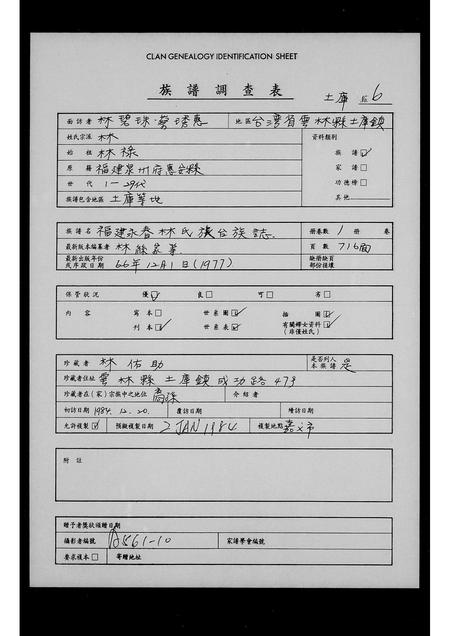 CLAN GENEALOGY IDENTIFICATION SHEET
族譜調查表
土庫 區 6
面訪者 林碧珠·蔡琇惠 地區 台灣省雲林縣土庫鎮
姓氏宗派 林 資料類別
始祖 林祿 族譜 ☑
原籍 福建泉州府惠安縣 家譜 □
世代 1-29代 功德榜 □
族譜包含地區 土庫等地 其他
族譜名 福建永春林氏族台族誌 冊卷數 1 冊 卷
最新版本編纂者 林 等 頁數 716面
最新出版年份 缺冊缺頁
或序跋日期 66年12月1日(1977) 部份採樓
保管狀況 優☑ 良□ 可□ 劣□
內容 寫本□ 世系圖☑ 插圖☑
刊本☑ 世系表☑ 有關婦女資料☑
(非僅姓氏)
珍藏者 林佑助 是否列入本族譜 是
珍藏者住址 雲林縣土庫鎮成功路473
珍藏者在(家)宗族中之地位 裔孫 介紹者
初訪日期 1984.12.20. 覆訪日期 增訪日期
允許複製☑ 預擬複製日期 2 JAN 1984 複製地點 嘉义市
附註
贈予者獎狀頒贈日期
攝影者編號 A861-10 家譜學會編號
要求複本□ 寄贈地址